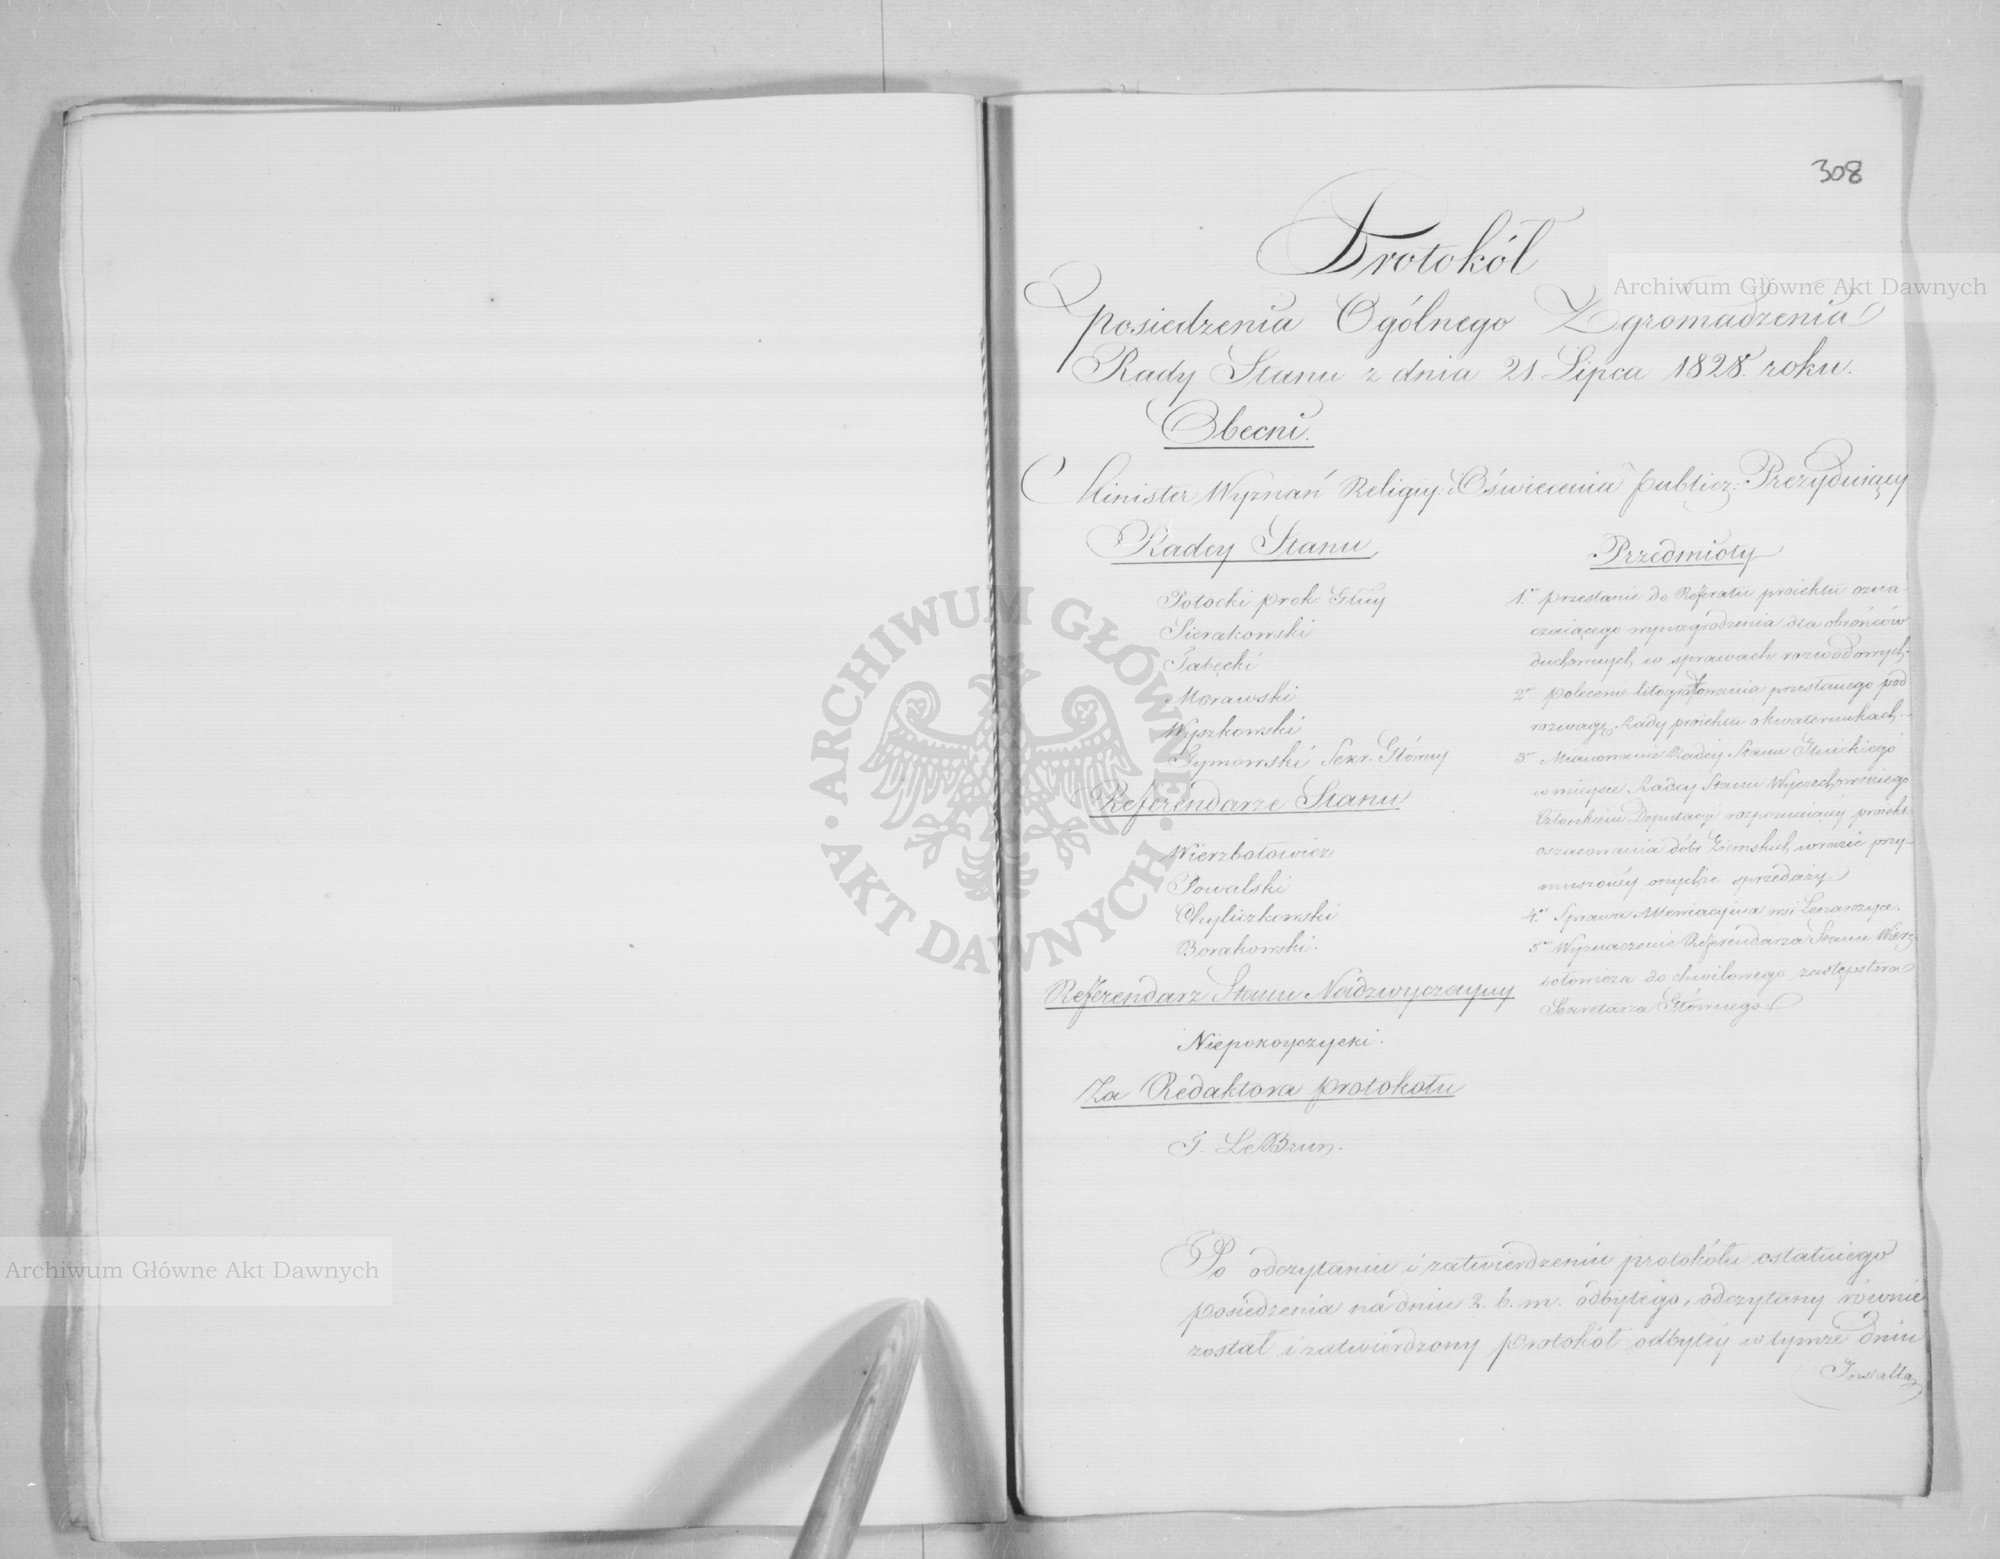 308
Protokół
posiedzenia Ogólnego Zgromadzenia
Rady Stanu z dnia 21. Lipca 1828. roku.
Obecni.
Minister Wyznań Religiy: i Oświecenia publicz: Prezyduiący
Radcy Stanu
Potocki prok: Głny
Sierakowski
Tabęcki
Morawski
Wyszkowski
Tymowski Sekr. Główny
Referendarze Stanu
Wierzbołowicz
Powalski
Chyliczkowski
Borakowski.
Referendarz Stanu Nadzwyczayny
Niepokoyczycki.
Za Redaktora protokołu
T. LeBrun.
Przedmioty
1. przesłanie do Referatu proiektu ozna-
czaiącego wynagrodzenia dla obrońców
duchownych w sprawach rozwodowych.
2. polecenie litografowania przesłanego pod
rozwagę Rady proiektu o kwaterunkach.
3. Mianowanie Radcy Stanu Gliwickiego
w mieysce Radcy Stanu Wyczechowskiego
Członkiem Deputacyi rozpoznaiącey proiekt
oszacowania dóbr Ziemskich w razie przy-
muszoney onychże sprzedaży.
4. Sprawa wsi Lenarczyce.
5. Wyznaczenie Referendarza Stanu Wierz-
bołowicza do chwilowego zastępstwa
Sekretarza Głównego.
Po odczytaniu i zatwierdzeniu protokołu ostatniego
posiedzenia na dniu 2. b. m. odbytego, odczytany równie
został i zatwierdzony protokół odbytéy w tymże dniu
Installa
Archiwum Główne Akt Dawnych
Archiwum Główne Akt Dawnych
ARCHIWUM GŁÓWNE
AKT DAWNYCH